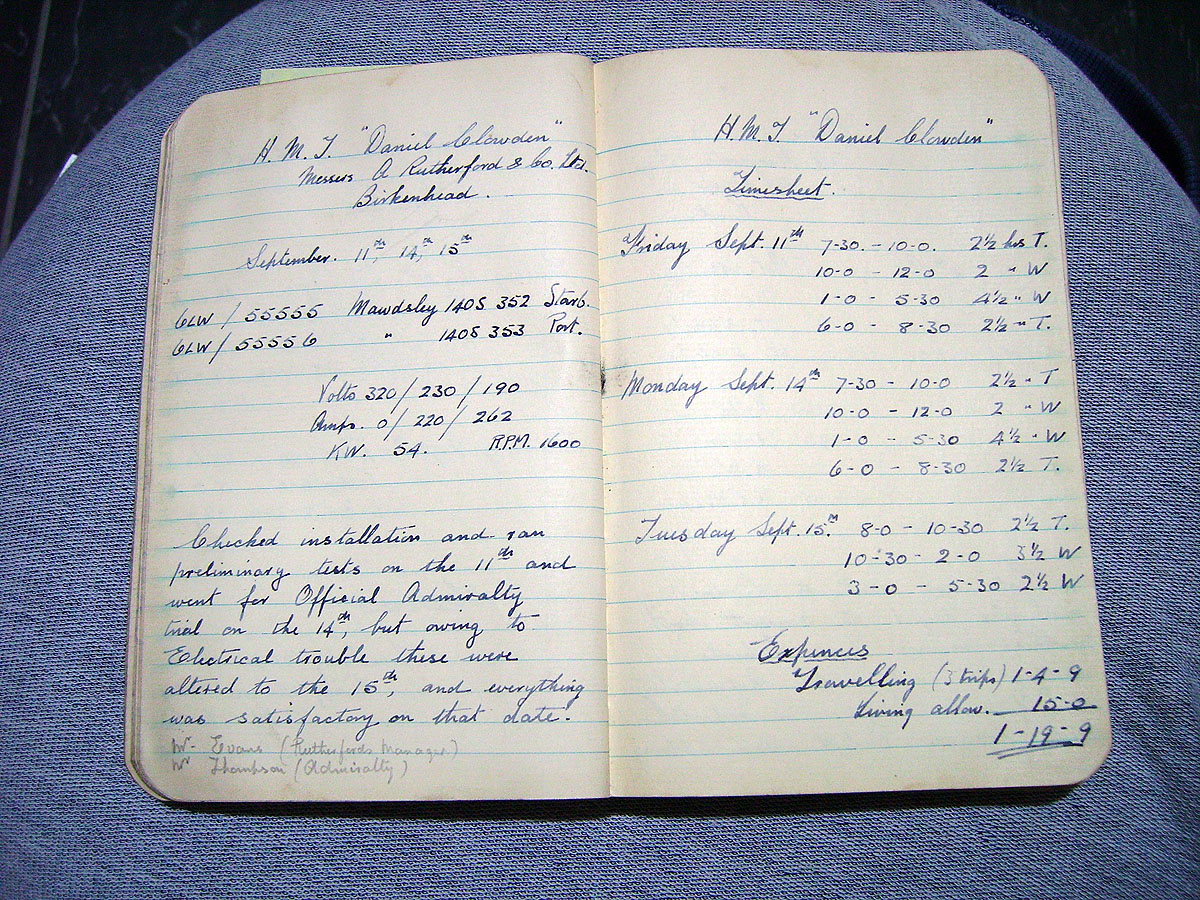 H. M. T. "Daniel Clowden"
Messers A Rutherford & Co. Ltd.
Birkenhead.
September. 11th, 14th, 15th
6LW / 55555 Mawdsley 140S 352 Starb.
6LW / 55556 " 140S 353 Port.
Volts 320 / 230 / 190
Amps. 0 / 220 / 262
KW. 54. R.P.M. 1600
Checked installation and ran
preliminary tests on the 11th and
went for Official Admiralty
trial on the 14th, but owing to
Electrical trouble these were
altered to the 15th, and everything
was satisfactory on that date.
Mr. Evans (Rutherfords Manager)
Mr Thompson (Admiralty)
H. M. T "Daniel Clowden"
Timesheet.
Friday Sept. 11th 7-30. - 10-0. 2½ hrs T.
10-0 - 12-0 2 " W
1-0 - 5-30 4½ " W
6-0 - 8-30 2½ " T.
Monday Sept. 14th 7-30 - 10-0 2½ " T
10-0 - 12-0 2 " W
1-0 - 5-30 4½ " W
6-0 - 8-30 2½ T.
Tuesday Sept. 15th. 8-0 - 10-30 2½ T.
10-30 - 2-0 3½ W
3-0 - 5-30 2½ W
Expences
Travelling (3 trips) 1-4-9
Living allow. 15-0
1-19-9